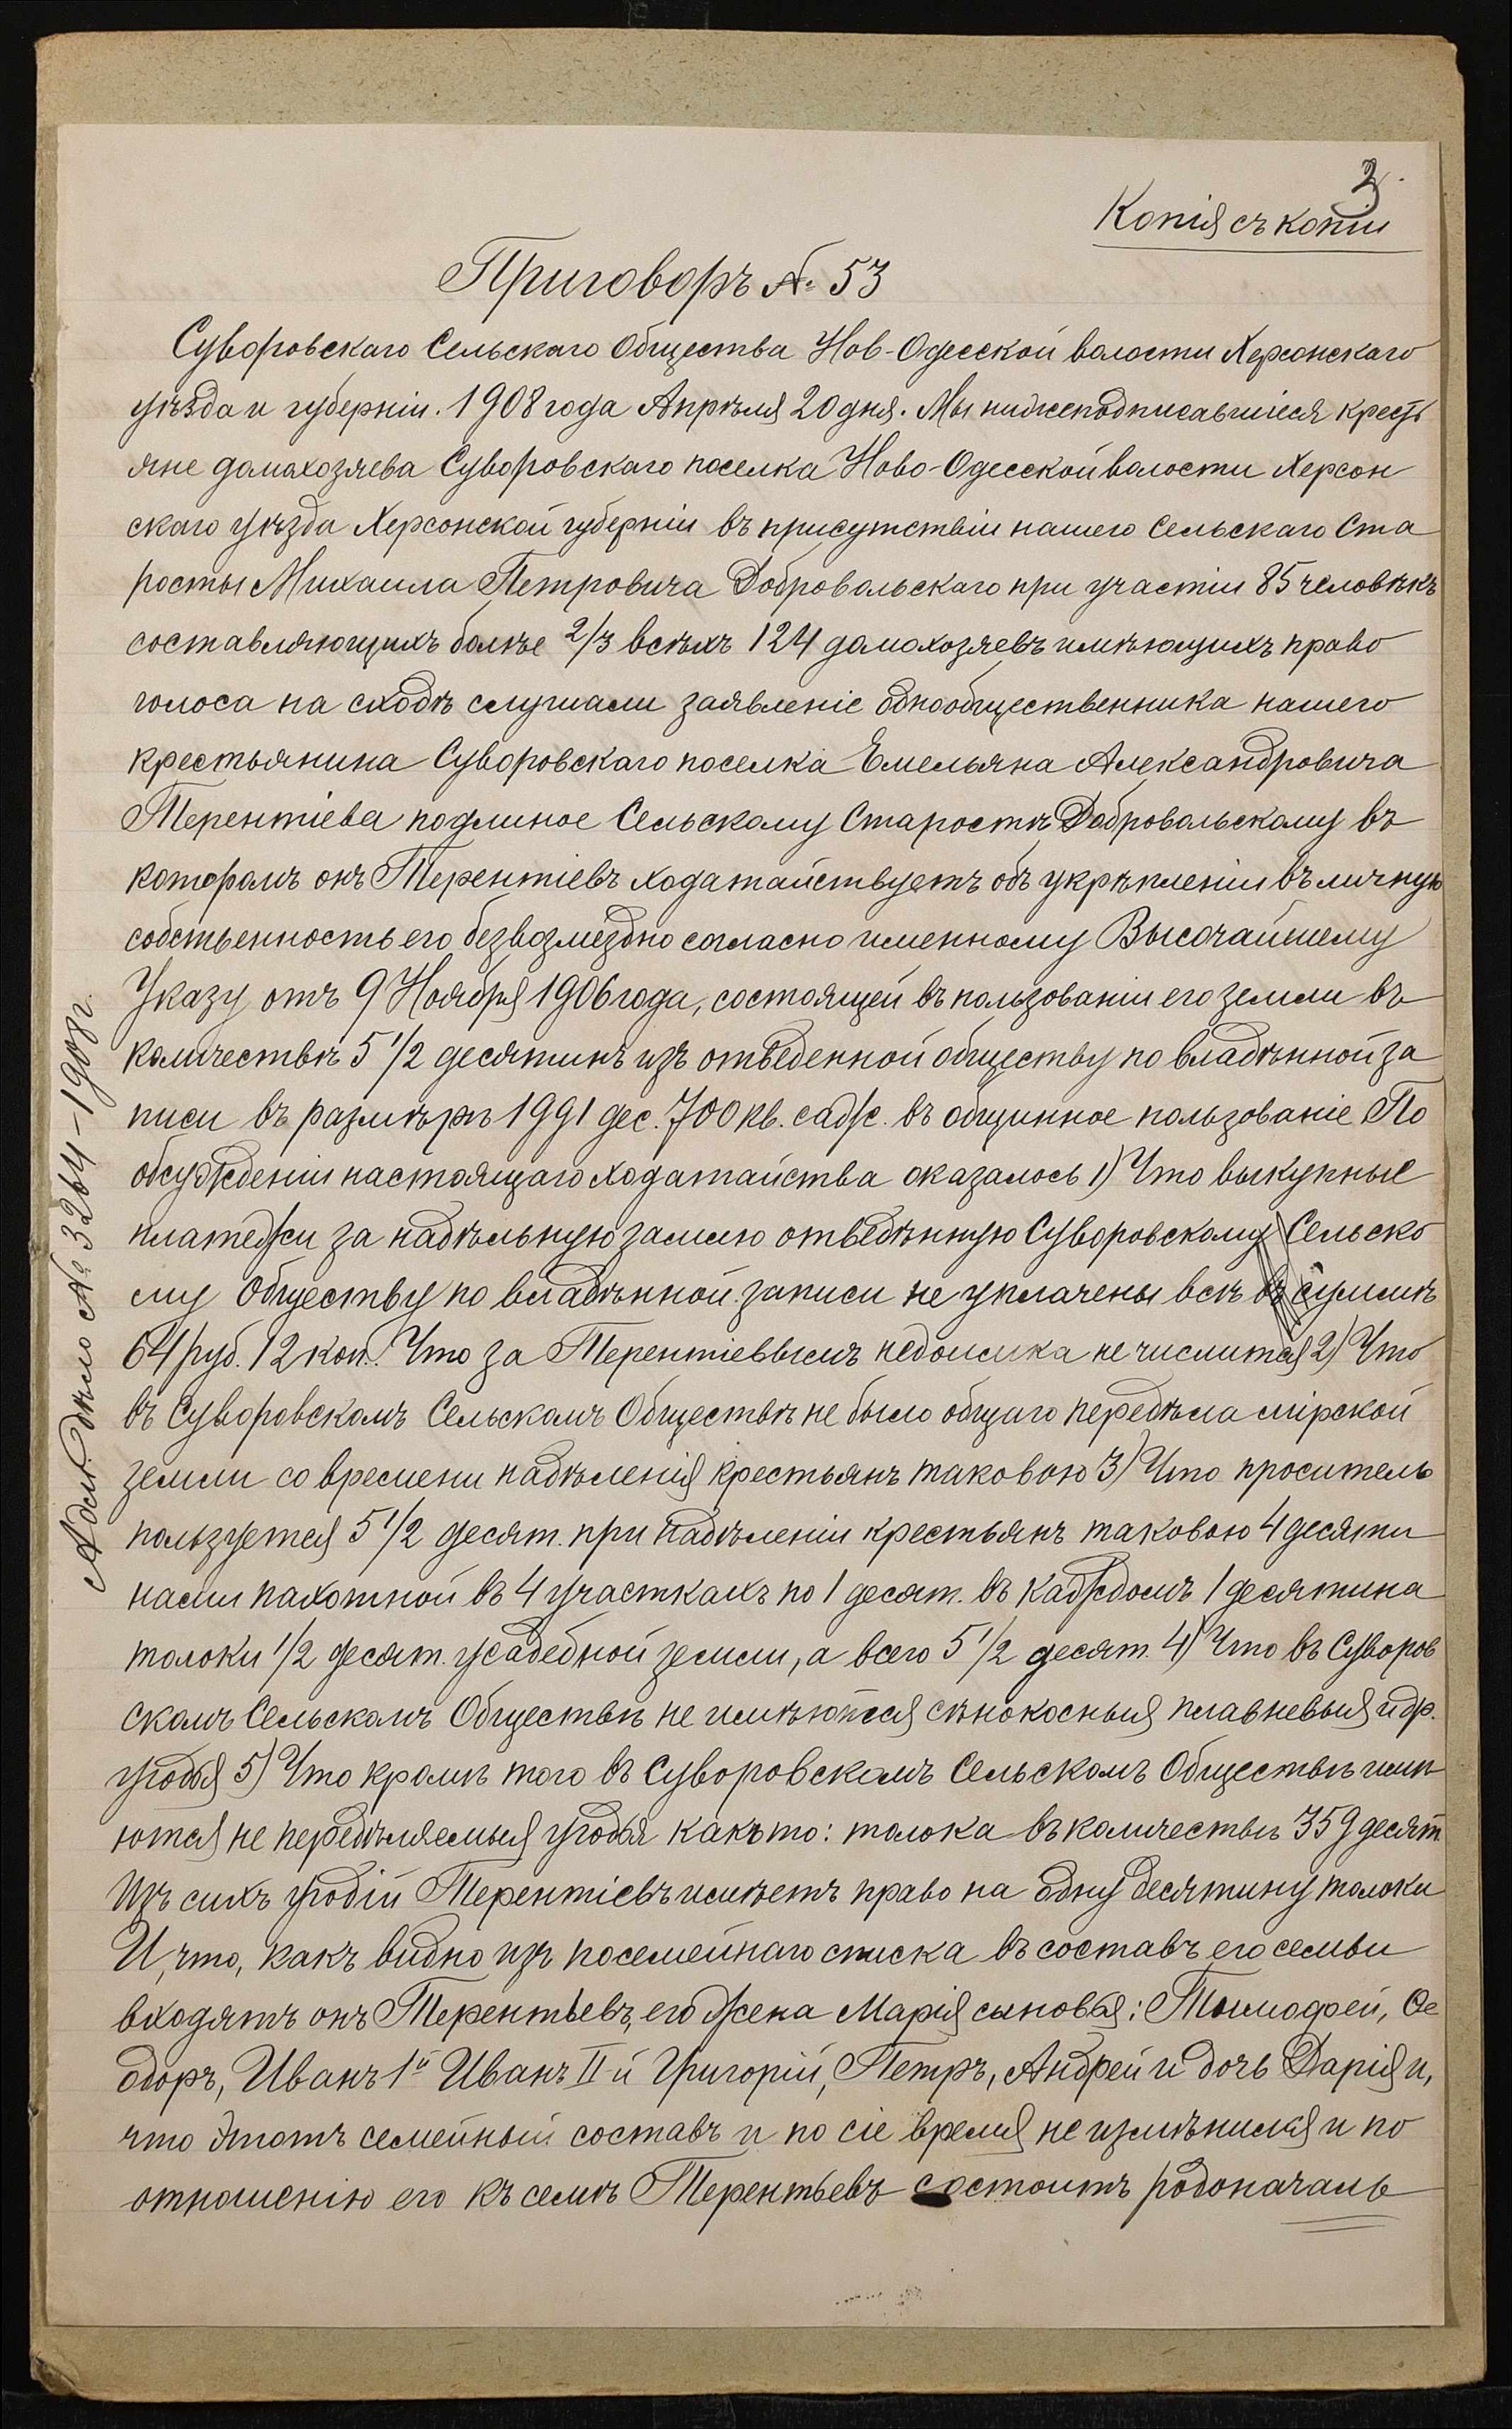 2.
Копія съ копіи
Приговоръ № 53
Суворовскаго Сельскаго Общества Нов-Одесской волости Херсонскаго
уѣзда и губерніи. 1908 года Апрѣля 20 дня. Мы нижеподписавшіеся кресть
яне домохозяева Суворовскаго поселка Ново-Одесской волости Херсон
скаго уѣзда Херсонской губерніи въ присутствіи нашего Сельскаго Ста
росты Михаила Петровича Добровольскаго при участіи 85 человѣкъ
составляющихъ болѣе 2/3 всѣхъ 124 домохозяевъ имѣющихъ право
голоса на сходѣ слушали заявленіе однообщественника нашего
крестьянина Суворовскаго поселка Емельяна Александровича
Терентіева подлиное Сельскому Старостѣ Добровольскому въ
которомъ онъ Терентіевъ ходатайствуетъ объ укрѣпленіи въ личную
собственность его безвозмездно согласно именному Высочайшему
Указу отъ 9 Ноября 1906 года, состоящей въ пользованіи его земли въ
количествѣ 5 1/2 десятинъ изъ отведенной обществу по владѣнной за
писи въ размѣрѣ 1991 дес. 700 кв. саж. въ общинное пользованіе По
обсужденіи настоящаго ходатайства оказалось 1) Что выкупные
платежи за надѣльную замлю отведѣнную Суворовскому Сельско
му Обществу по владѣнной записи не уплачены всѣ въ суммѣ
64 руб. 12 коп. Что за Терентіеввымъ недоимка не числится 2) Что
въ Суворовскомъ Сельскомъ Обществѣ не было общаго передѣла мірской
земли со времени надѣленія крестьянъ таковою 3) Что проситель
пользуется 5 1/2 десят. при надѣленіи крестьянъ таковою 4 десяти
нами пахотной въ 4 участкахъ по 1 десят. въ каждомъ 1 десятина
толоки 1/2 десят. усадебной земли, а всего 5 1/2 десят. 4) Что въ Суворов
скомъ Сельскомъ Обществѣ не имѣются сѣнокосныя плавневыя и др.
угодья 5) Что кромѣ того въ Суворовскомъ Сельскомъ Обществѣ имѣ
ются не передѣляемыя угодья какъ то: толока въ количествѣ 359 десят
Изъ сихъ угодій Терентіевъ имѣетъ право на одну десятину толоки
И, что, какъ видно изъ посемейнаго списка въ составъ его семьи
входятъ онъ Терентьевъ, его жена Марія сыновья: Тимофей, Ѳе
доръ, Иванъ 1й Иванъ II-й Григорій, Петръ, Андрей и дочь Дарія и,
что этотъ семейный составъ и по сіе время не измѣнился и по
отношенію его къ семьѣ Терентьевъ состоитъ родоначаль
дѣло № 3264-1908 г.